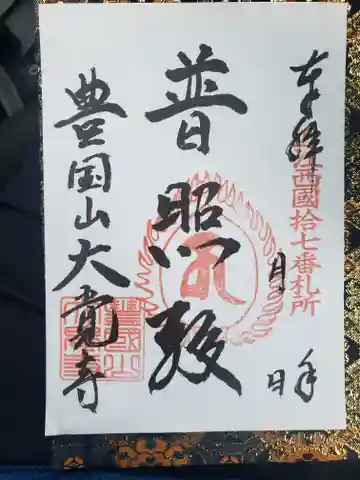 奉拝
江西國拾七番札所
年
月
日
普照殿
豊国山大覚寺